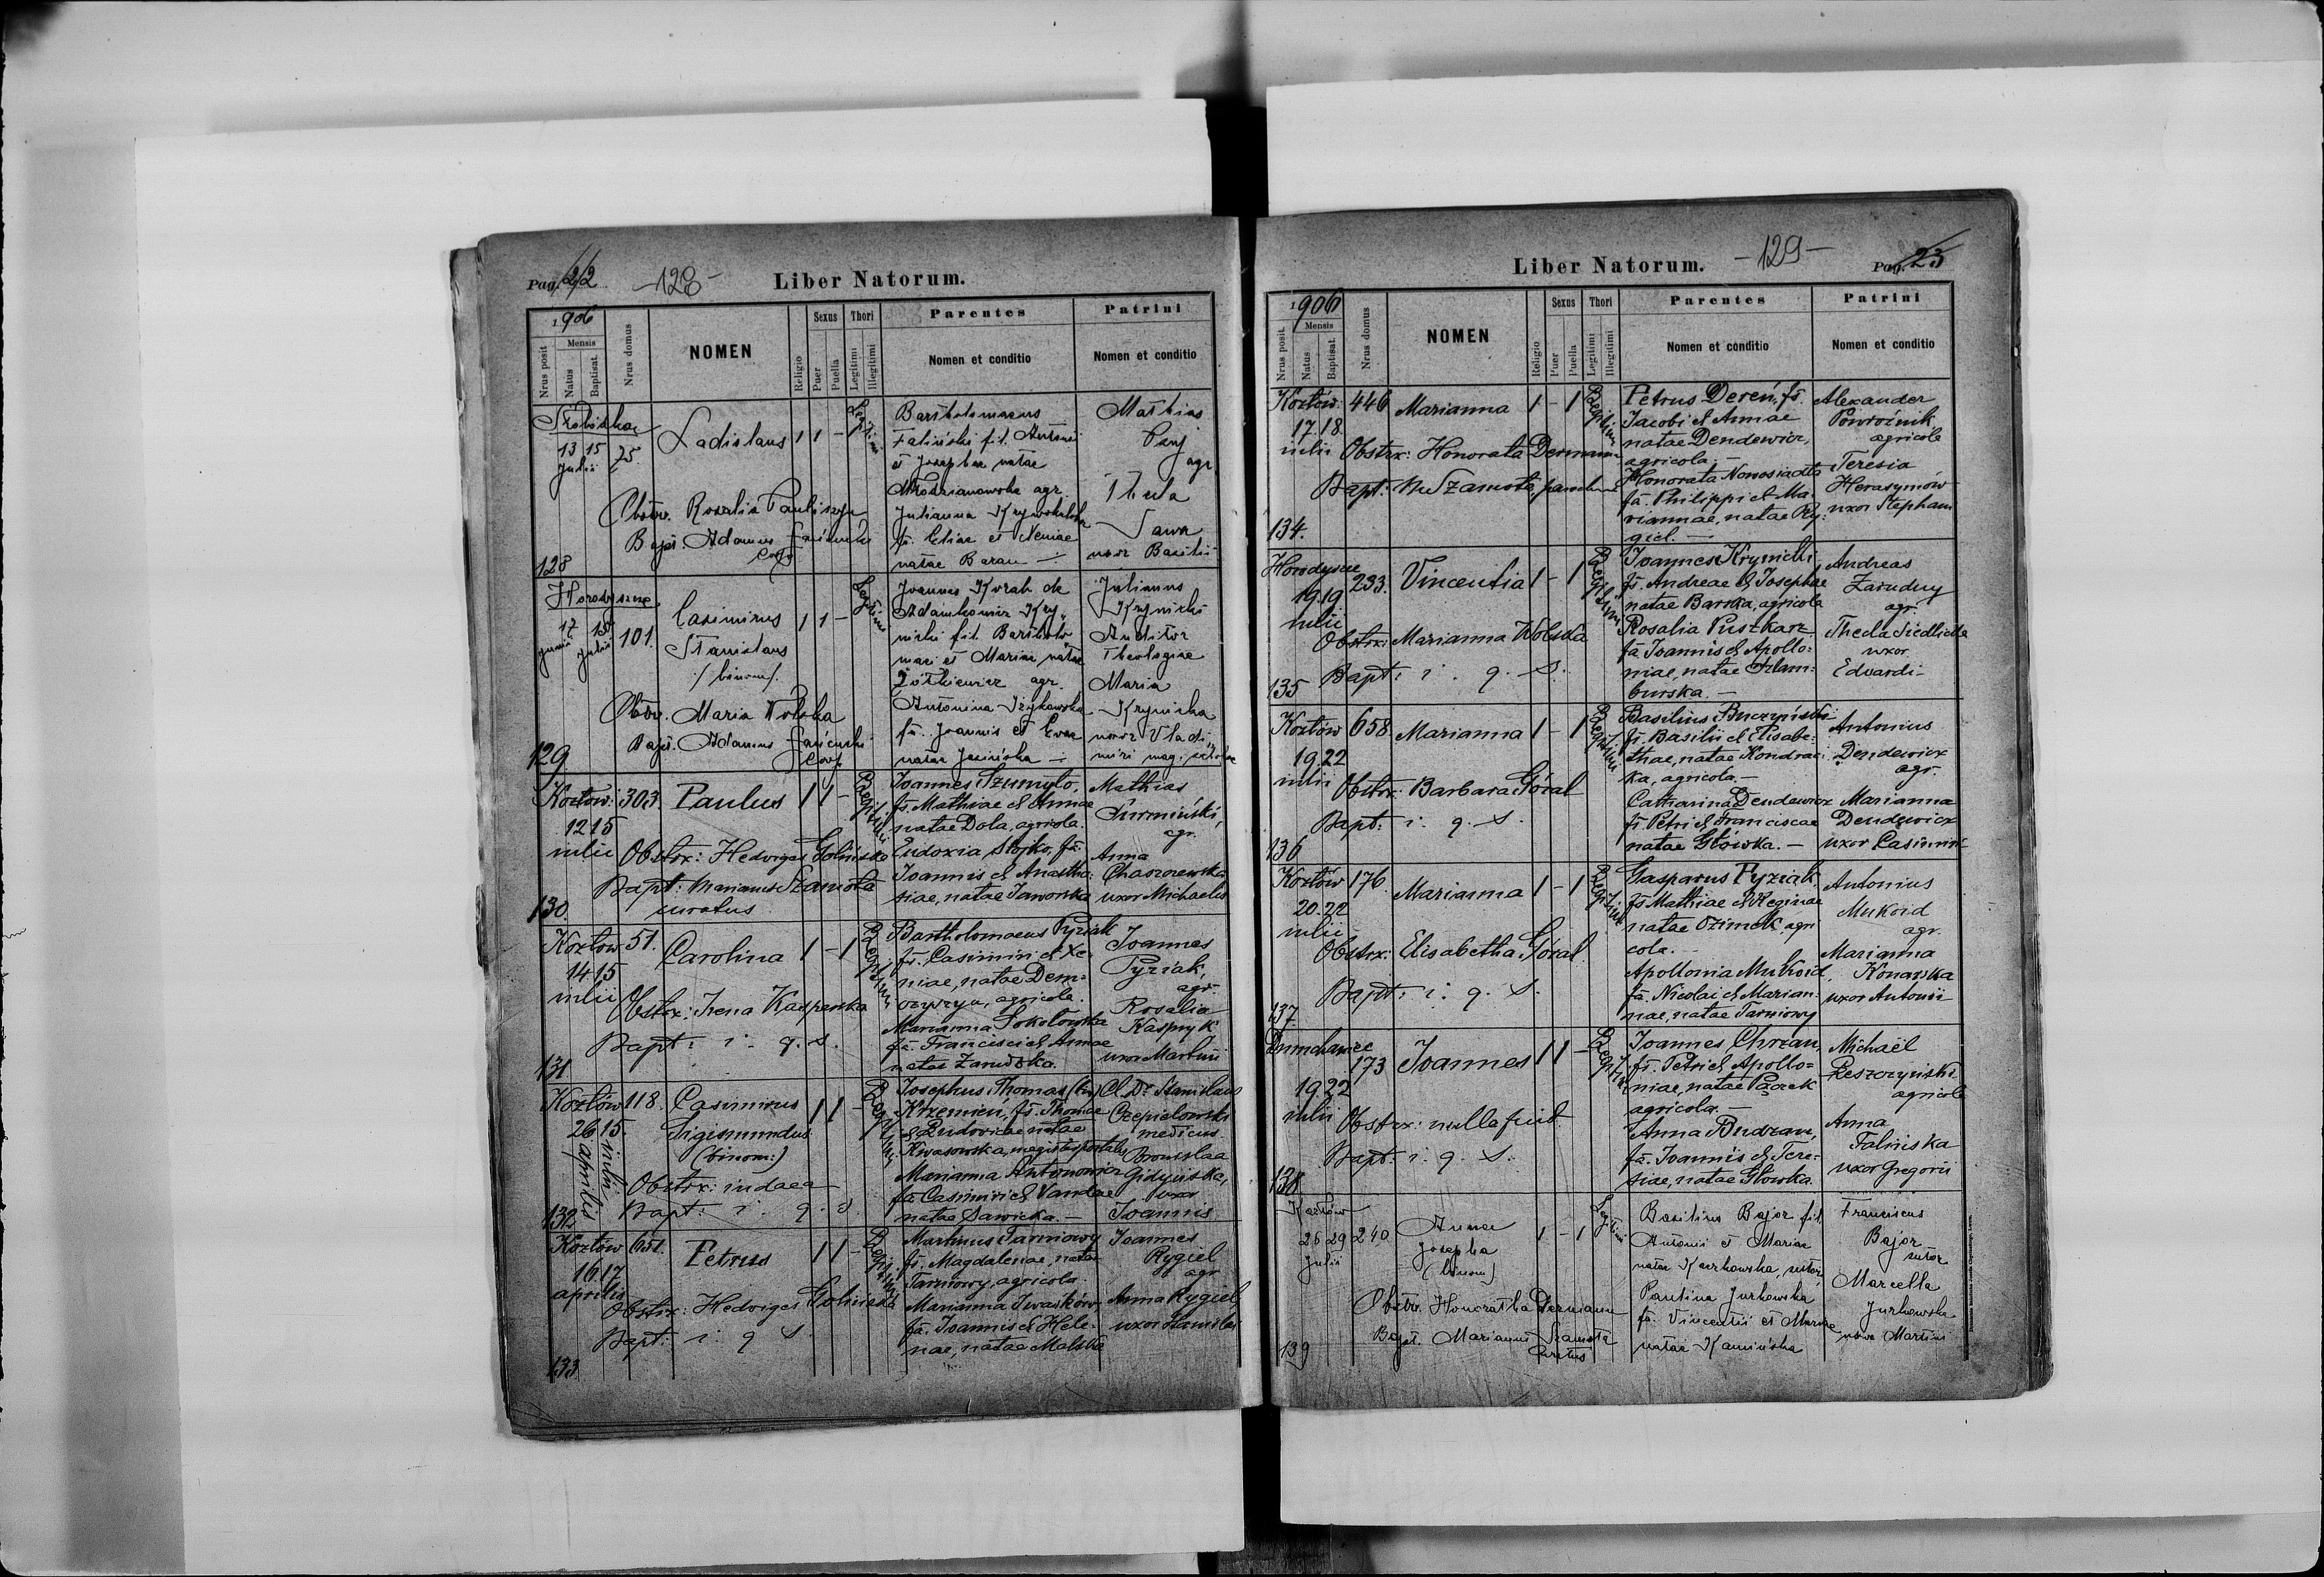 Pag. 22 -128- Liber Natorum.
1906
Nrus posit
Mensis
Natus
Baptisat.
Nrus domus
NOMEN
Religio
Sexus
Puer
Puella
Thori
Legitimi
Illegitimi
Parentes
Nomen et conditio
Patrini
Nomen et conditio
13 15 75. Ladislaus 1 1 -
Julii
Obstr. Rosalia
Bapt. Adamus
Coop
128
Bartholomaeus
Faliński fil. Antonii
et Josephae natae
agr.
Julianna
fa. Eliae et
natae Baran
Mathias
agr.
Thecla
Sawa
uxor Basilii
Horodyszcze
17 15 101. Casimirus 1 1 -
Junii Julii
Stanislaus
/binom/.
Obstr. Maria Wolska
Bapt. Adamus
Coop
129
Joannes Korab de
Adamkowice Kry-
nicki fil. Bartholo
maei et Mariae, natae
Żółkiewicz agr.
Antonina
fa. Joannis et Evae
natae Jasińska
Julianus
Krynicki
Auditor
Theologiae
Maria
Krynicka
uxor Vladi
miri mag.
Kozłów. 303. Paulus 1 1 - Legitimi
12 15
iulii
Obstrx: Hedviges Golińska
Bapt: Marianus Szamota
curatus
130.
Joannes Szumyło,
fs. Mathiae et Annae
natae Dola, agricola.
Eudoxia Stojko, fa.
Joannis et Anasta-
siae, natae Jaworska
Mathias
Surmiński,
agr.
Anna
Chaszczewska
uxor Michaelis
Kozłów 51. Carolina 1 - 1 Legitimi
14 15
iulii
Obstrx: Irena Kasperska
Bapt: i. q. s.
131
Bartholomaeus Pyziak
fs. Casimiri et Xe-
niae, natae Dem-
czyszyn, agricola.
Marianna Sokołowska
fa. Francisci et Annae
natae
Joannes
Pyziak,
agr.
Rosalia
Kaspryk
uxor Martini
Kozłów 118. Casimirus 1 1 -
26 15.
aprilis iulii
Sigismundus
(binom:)
Obstrx: iudaea
Bapt: i. q. s.
132
Josephus Thomas (bin)
Krzemień, fs. Thomae
et Ludovicae natae
Kwasowska, magist. postalis
Marianna Antonowicz
fa. Casimiri et Vandae
natae Sawicka. —
Cl. Dr. Stanislaus
Czepielowski
medicus
Bronislaa
Gidyńska,
uxor
Joannis
Kozłów 651. Petrus 1 1 -
16 17
aprilis
Obstrx: Hedviges Golińska
Bapt: i. q. s.
133
Martinus Tarnowy
fs. Magdalenae, natae
Tarnowy, agricola.
Marianna Iwaśków,
fa. Joannis et Hele-
nae, natae Malska
Joannes
Rygiel
agr
Anna Rygiel,
uxor Stanislai
Liber Natorum. -129- Pag. 23
1906
Nrus posit.
Mensis
Natus
Baptisat.
Nrus domus
NOMEN
Religio
Sexus
Puer
Puella
Thori
Legitimi
Illegitimi
Parentes
Nomen et conditio
Patrini
Nomen et conditio
Kozłów. 446 Marianna 1 - 1 Legitimi
17 18.
iulii
Obstrx: Honorata Dermann
Bapt: Szamota,
134.
Petrus Dereń, fs.
Jacobi et Annae
natae Dendewicz,
agricola. —
Honorata Nowosiadła
fa. Philippi et Ma-
riannae, natae Ry-
giel. —
Alexander
Powroźnik
agricola
Teresia
Herasymów
uxor Stephani
Horodyszcze 233. Vincentia 1 - 1 Legitimi
19 19
iulii
Obstrx: Marianna Wolska
Bapt: i. q. s.
135
Joannes Krynicki,
fs. Andreae et Josephae
natae Barska, agricola
Rosalia Puszkarz,
fa. Joannis et Apollo-
niae, natae Ham-
burska. —
Andreas
Zarudny
agr.
Thecla Siedlecka
uxor
Edvardi
Kozłów 658. Marianna 1 - 1
19 22
iulii
Obstrx: Barbara Góral
Bapt: i. q. s.
136
Basilius Buczyński
fs. Basilii et Elisabe-
thae, natae Kondrac-
ka, agricola. —
Catharina Dendewicz
fa. Petri et Franciscae
natae Głowka. —
Antonius
Dendewicz
agr.
Marianna
Dendewicz
uxor Casimiri
Kozłów 176. Marianna 1 - 1
20 22
iulii
Obstrx: Elisabetha Góral.
Bapt: i. q. s.
137.
Gasparus Pyziak
fs. Mathiae et Reginae
natae Ozimek, agri
cola. —
Apollonia Mukoid,
fa. Nicolai et Marian-
nae, natae Tarnowy
Antonius
Mukoid
agr.
Marianna
Konarska
uxor Antonii
173 Joannes 1 1 -
19 22
iulii
Obstrx: nulla fuit
Bapt: i. q. s.
138
Joannes Chrzan,
fs. Petri et Apollo-
niae, natae Pączek
agricola. —
Anna Budzan,
fa. Joannis et Tere-
siae, natae Głowka.
Michaël
Reszczyński
agricola
Anna
Falińska
uxor Gregorii
Kozłów
26 29 240. Anna 1 - 1
Julii
Josepha
(binom)
Obstr. Honoratha Dermann
Bapt. Marianus Szamota
Curatus
139
Basilius Bajor fil.
Antonii et Mariae
natae Kaczkowska, sutor,
Paulina Jurkowska
fa. Vincentii et Mariae
natae Kamińska
Franciscus
Bajor
sutor
Marcella
Jurkowska
uxor Martini